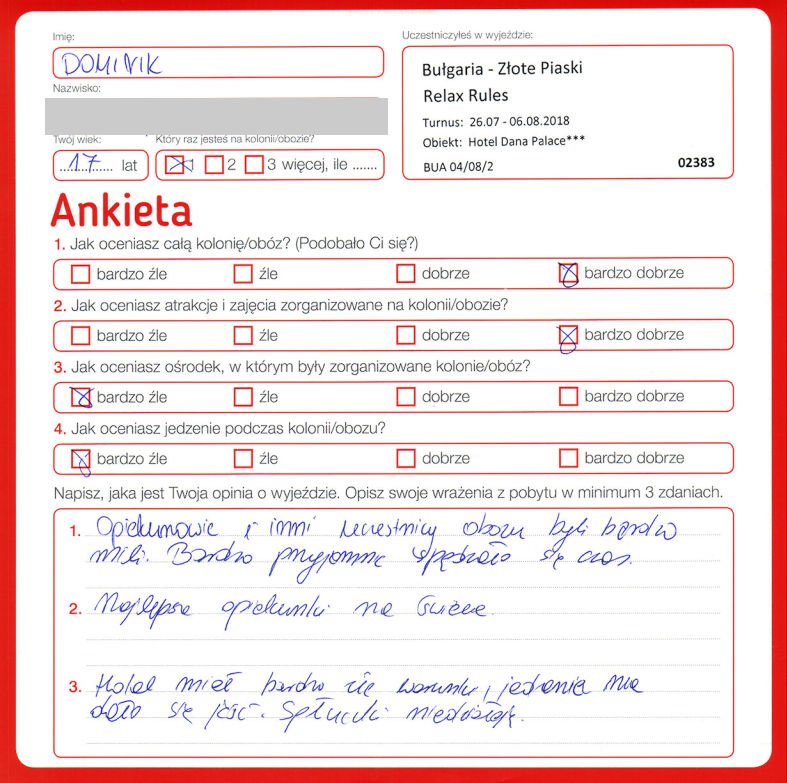 Imię:
DOMINIK
Nazwisko:
Twój wiek:
17 lat
Który raz jesteś na kolonii/obozie?
1 2 3 więcej, ile .......
Uczestniczyłeś w wyjeździe:
Bułgaria - Złote Piaski
Relax Rules
Turnus: 26.07 - 06.08.2018
Obiekt: Hotel Dana Palace***
BUA 04/08/2 02383
Ankieta
1. Jak oceniasz całą kolonię/obóz? (Podobało Ci się?)
bardzo źle źle dobrze bardzo dobrze
2. Jak oceniasz atrakcje i zajęcia zorganizowane na kolonii/obozie?
bardzo źle źle dobrze bardzo dobrze
3. Jak oceniasz ośrodek, w którym były zorganizowane kolonie/obóz?
bardzo źle źle dobrze bardzo dobrze
4. Jak oceniasz jedzenie podczas kolonii/obozu?
bardzo źle źle dobrze bardzo dobrze
Napisz, jaka jest Twoja opinia o wyjeździe. Opisz swoje wrażenia z pobytu w minimum 3 zdaniach.
1. Opiekunowie i inni uczestnicy obozu byli bardzo
mili. Bardzo przyjemnie spędzało się czas.
2. Najlepsze opiekunki na świecie.
3. Hotel miał bardzo złe warunki, jedzenia nie
dało się jeść. Spłuczki nie działają.